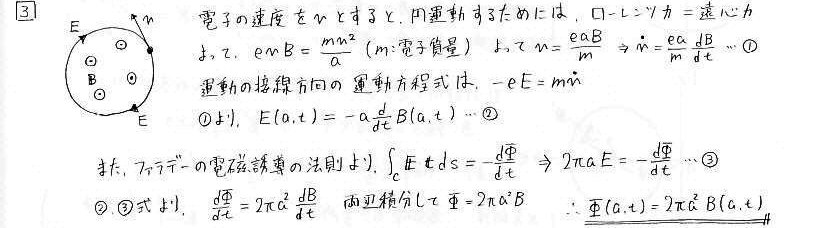 3
電子の速度をvとすると、円運動するためには、ローレンツ力=遠心力
よって、evB = mv²/a (m:電子質量) よって v = eaB/m ⇒ v̇ = ea/m dB/dt …①
運動の接線方向の運動方程式は、-eE = mv̇
①より、E(a,t) = -a d/dt B(a,t) …②
また、ファラデーの電磁誘導の法則より、∫c E t ds = -dΦ/dt ⇒ 2πaE = -dΦ/dt …③
②,③式より、dΦ/dt = 2πa² dB/dt 両辺積分して Φ = 2πa²B ∴ Φ(a,t) = 2πa² B(a,t)
E
v
B
E